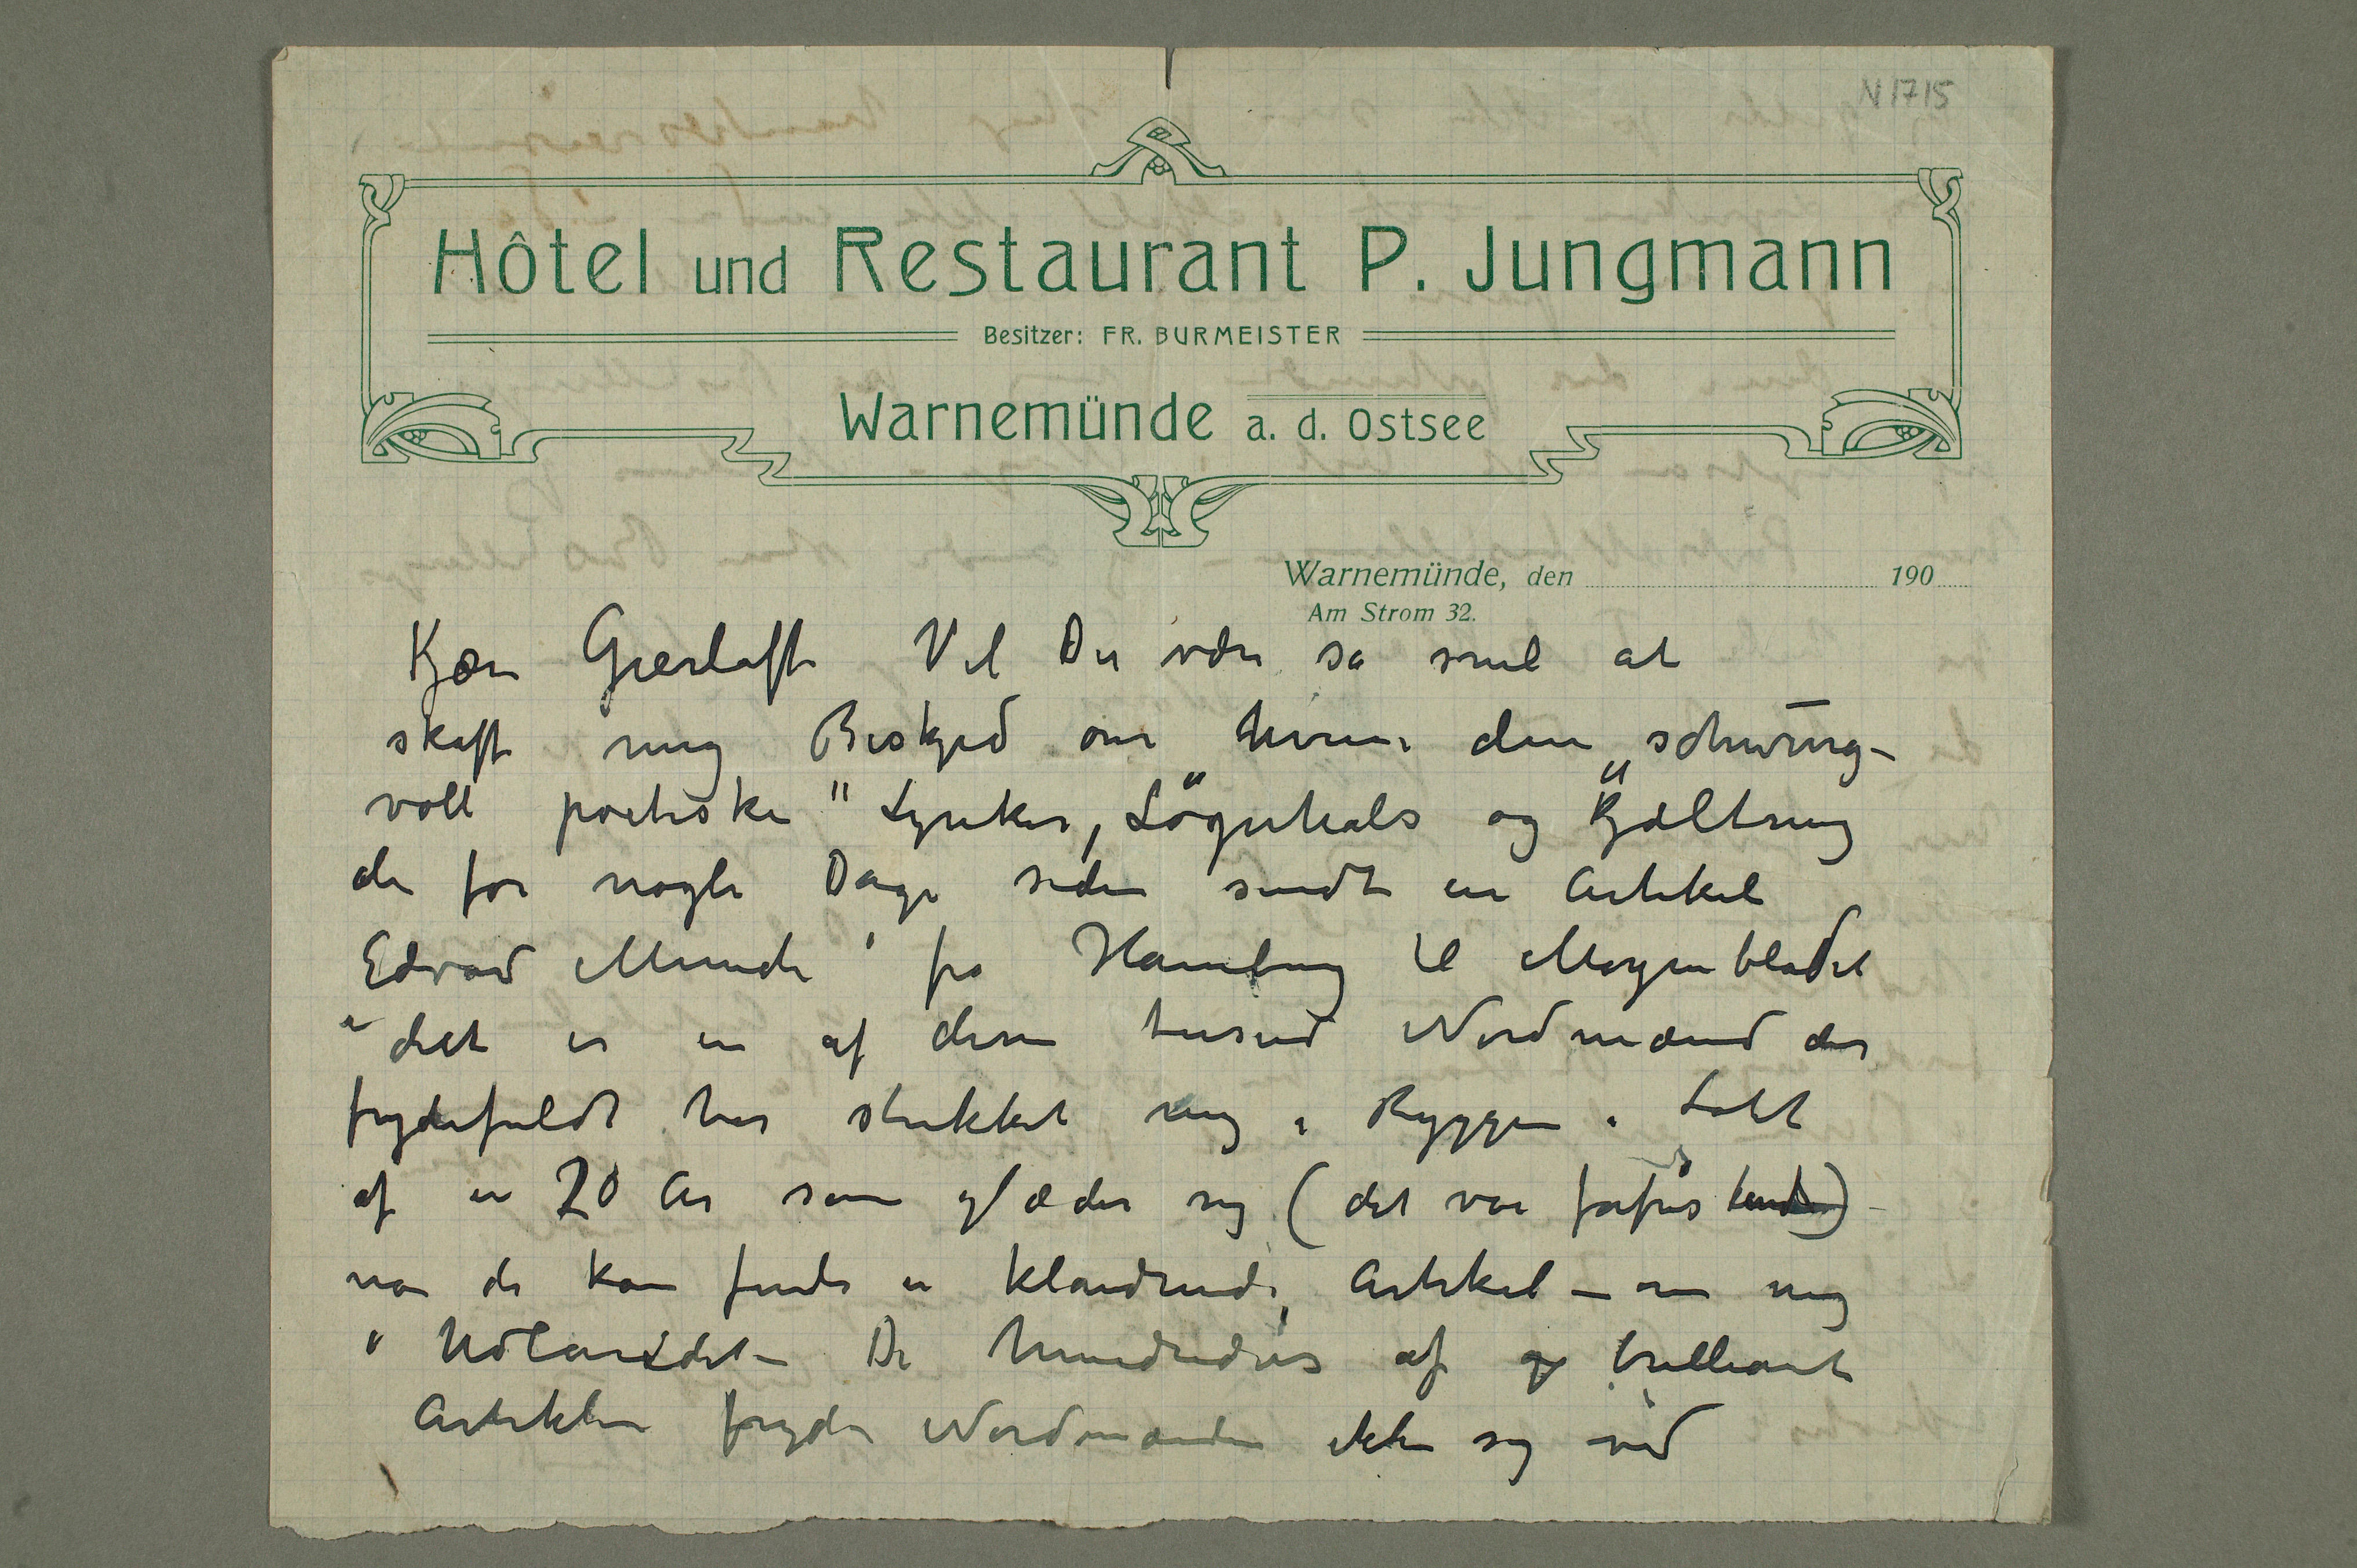 N 1715
Hôtel und Restaurant P. Jungmann
Besitzer: FR. BURMEISTER
Warnemünde a. d. Ostsee
Warnemünde, den 190
Am Strom 32.
Kjære Gierløff Vil De være så snil at
skaffe mig Beskjed om hvem den „schwung-
voll poetiske" Lyriker, Løgnhals og Kjæltring
der for nogle Dage siden sendte en Artikel
Edvard Munch fra Hamburg til Morgenbladet
– det er en af disse tusend Nordmænd der
frydefuldt har stukket mig i Ryggen i Løbet
af en 20 År som glæder sig (det var forfris
når de kan finde en klandrende Artikel – om mig
i Udlandet – De hundredvis af brilliante
Artikler fryder Nordmanden ikke sig ved